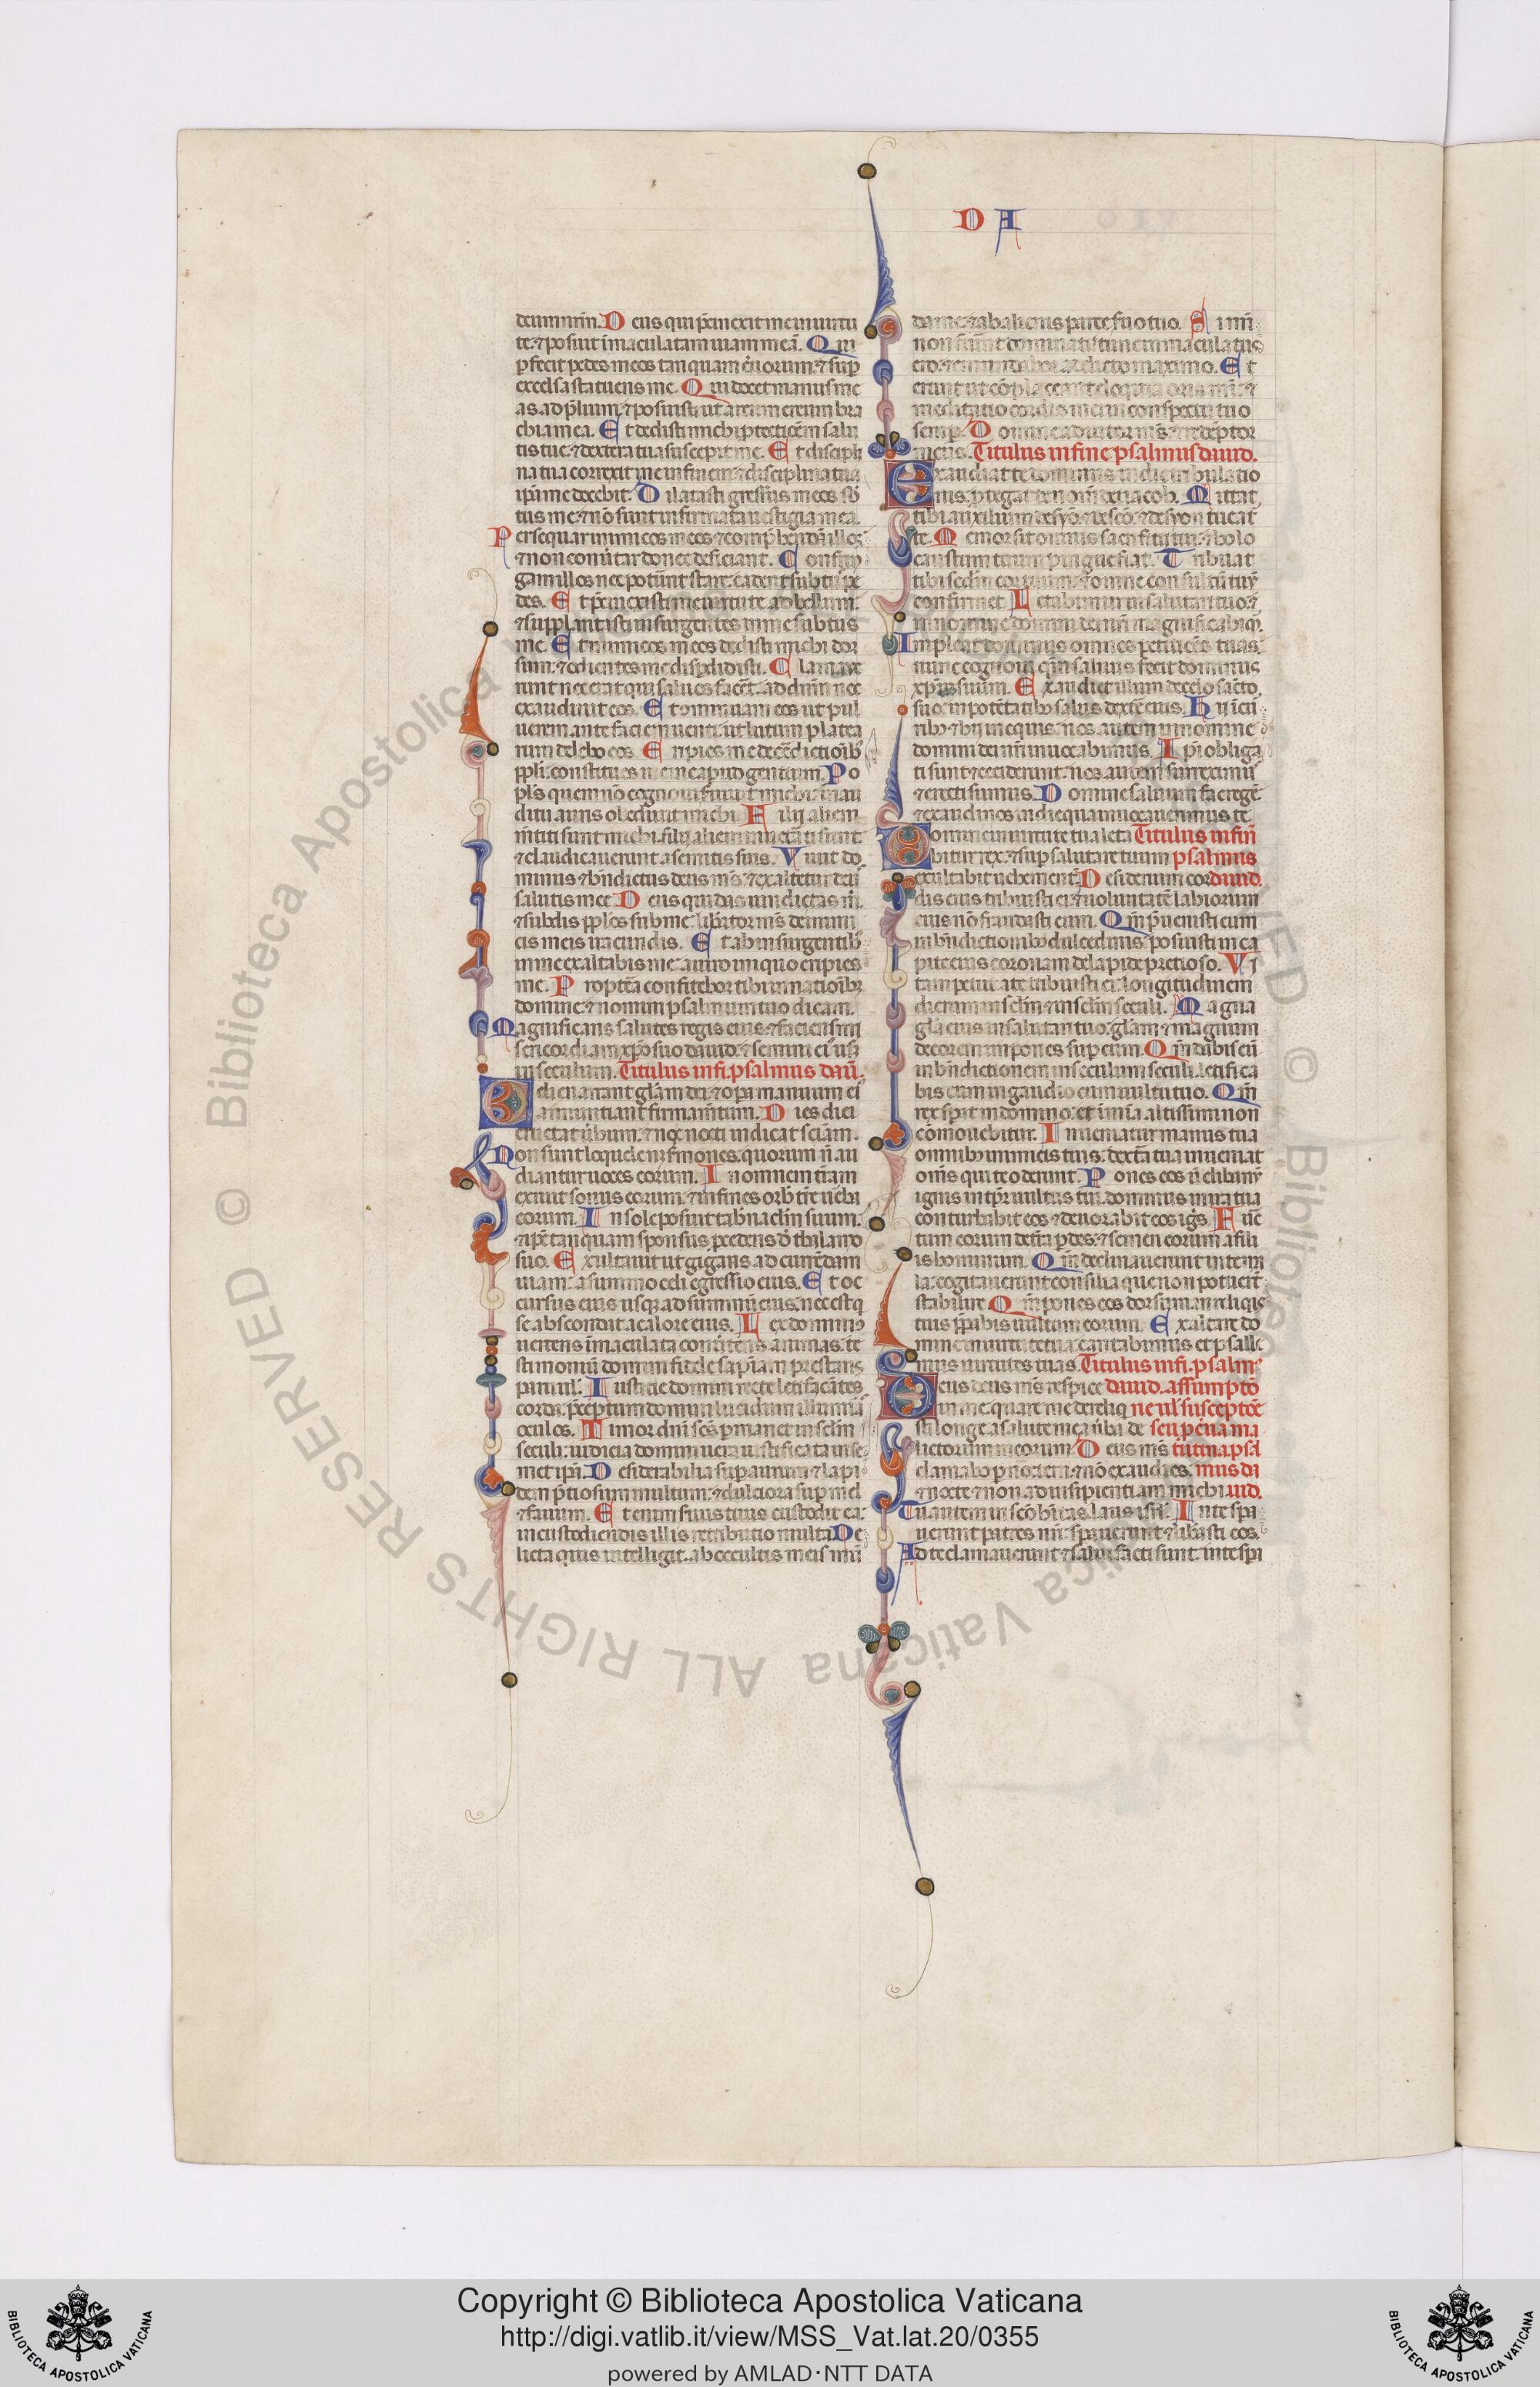 D A
deum nr̄m. D eus qui p̄cinxit me in uirtu
te. ⁊ posuit īmaculatam uiam meā. Q ui
ꝑfecit pedes meos tanquam c̄uorum. ⁊ suꝑ
excelsa statuens me. Q ui docet manus me
as ad p̄lium. ⁊ posuisti ut arcum ereum bra
chia mea. E t dedisti michi ꝓtectiōem salu
tis tue. ⁊ dextera tua suscepit me. E t discipli
na tua correxit me in finem. ⁊ disciplina tua
ip̄a me docebit. D ilatasti gressus meos sb̄
tus me. ⁊ nō sunt infirmata uestigia mea.
P ersequar inimicos meos ⁊ comp̄hendā illos
⁊ non conu̇tar donec deficiant. C onfrin
gam illos nec potūnt stare. cadent subt᷒ pe
des. E t p̄cinxisti me uirtute ad bellum.
⁊ supplantasti insurgentes in me subtus
me. E t inimicos meos dedisti michi dor
sum. ⁊ odientes me disꝑdidisti. C lamaue
runt nec erat qui saluos facēt. ad dn̄m nec
exaudiuit eos. E t cominuam eos ut pul
uerem ante faciem uenti. ut lutum platea
rum delebo eos. E ripies me de ct̄dictiōib᷒
ppl̄i. constitues me in capud gentium. P o
pl̄s quem nō cognoui seruiuit michi. in au
ditu auris obediuit michi. F ilij alieni
m̄titi sunt michi. filij alieni inuet̄ati sunt
⁊ claudicauerunt a semitis suis. V iuit do
minus ⁊ bn̄dictus deus m̄s. ⁊ exaltetur deus
salutis mee. D eus qui das uindictas m̄
⁊ subdis ppl̄os sub me. liberator m̄s de inimi
cis meis iracundis. E t ab insurgentib᷒
in me exaltabis me. a uiro iniquo eripies
me. P roptea confitebor tibi in natiōib᷒
domine. ⁊ nomini psalmum tuo dicam.
M agnificans salutes regis eius. ⁊ faciens mi
sericordiam xp̄o suo dauid. ⁊ semini ei᷒ usq̄
in seculum. Titulus in fi. psalmus dauī.
C eli enarrant glām dei. ⁊ oꝑa manuum ei᷒
annuntiant firmam̄tum. D ies diei
eructat u̇bum. ⁊ nox nocti indicat sciām.
N on sunt loquele neq̄ sermones. quorum n̄ au
diantur uoces eorum. I n omnem t̄ram
exiuit sonus eorum. ⁊ in fines orb̄ tr̄e u̇ba
eorum. I n sole posuit tab̄naclm̄ suum.
⁊ ip̄e tanquam sponsus ꝓcedens d̄ thalamo
suo. E xultauit ut gigans ad currēdam
uiam. a summo celi egressio eius. E t oc
cursus eius usq̄ ad summū eius. nec est q̇
se abscondat a calore eius. L ex dominj
uertens īmaculata conu̇tens animas. te
stimoniū domini fidele sapiām prestans
paruul᷒. I usticie domini recte letificātes
corda. p̄ceptum domini lucidum illuminās
oculos. T imor dn̄i scs̄ ꝑmanet in sclm̄
seculi. iudicia domini uera iustificata in se
met ip̄a. D esiderabilia suꝑ aurum ⁊ lapi
dem p̄tiosum multum. ⁊ dulciora suꝑ mel
⁊ fauum. E t enim seruus tuus custodit ea.
in custodiendis illis retributio multa. D e
licta quis intelligit. ab occultis meis mū
da me. ⁊ ab alienis parce seruo tuo. S i m̄
non fuerint dominati. tunc inmaculatus
ero. ⁊ emundabor a delicto maximo. E t
erunt ut cōplaceant eloquia oris mei. ⁊
meditatio cordis mei in conspectu tuo
semꝑ. D omine adiutor m̄s. ⁊ redēptor
meus. Titulus in fine psalmus dauid.
E xaudiat te dominus in die tribulatio
nis. ꝓtegat te nom̄ dei iacob. M ittat
tibi auxilium de sc̄o. ⁊ de syon tueat᷒
te. M emor sit omnis sacrificij tui. ⁊ holo
caustum tuum pingue fiat. T ribuat
tibi sedm̄ cor tuum. ⁊ omne consiliū tuū
confirmet. L etabimur in salutari tuo. ⁊
in nomine domini dei nr̄i magnificabim᷒.
I mpleat dominus omnes petitiōes tuas.
nunc cognoui qm̄ saluum fecit dominus
xp̄m suum. E xaudiet illum de celo sācto
suo. in potētatib᷒ salus dextē eius. H ij in cur
rib᷒ ⁊ hij in equis. nos autem in nomine
domini dei nr̄i inuocabimus. I p̄i obliga
ti sunt ⁊ ceciderunt. nos autem surreximus
⁊ erecti sumus. D omine saluum fac regē.
⁊ exaudi nos in die qua inuocauerimus te.
D omine in uirtute tua leta Titulus in fin̄
bitur rex. ⁊ suꝑ salutare tuum psalmus
exultabit uehement᷒. D esiderium cor dauid.
dis eius tribuisti ei. ⁊ uoluntatē labiorum
eius nō fraudasti eum. Q m̄ p̄uenisti eum
in bn̄dictionib᷒ dulcedinis. posuisti in ca
pite eius coronam de lapide pretioso. V i
tam petiuit a te ⁊ tribuisti ei. longitudinem
dierum in sclm̄ ⁊ in sclm̄ seculi. M agna
glā eius in salutari tuo. glām ⁊ magnum
decorem impones suꝑ eum. Q m̄ dabis eū
in bn̄dictionem in seculum seculi. letifica
bis eum in gaudio cum uultu tuo. Q m̄
rex sꝑat in domino. et in mīa altissimi non
cōmouebitur. I nueniatur manus tua
omnib᷒ inimicis tuis. dextā tua inueniat
om̄s qui te oderunt. P ones eos ut clibanū
ignis in tp̄r uultus tui. dominus in ira sua
conturbabit eos ⁊ deuorabit eos igs̄. F ruc̄
tum eorum de tr̄a ꝑdes. ⁊ semen eorum a fili
is hominum. Q m̄ declinauerunt in te ma
la. cogitauerunt consilia que non potuer̄t
stabilire. Q m̄ pones eos dorsum. in reliquis
tuis p̄parabis uultum eorum. E xaltare do
mine in uirtute tua. cantabimus et psalle
mus uirtutes tuas. Titulus in fi. psalm᷒
D eus deus m̄s respice dauid. assumptō
in me. quare me dereliq̇ ne ul᷒ susceptōe
sti. longe a salute mea u̇ba de seu ꝑ cūa ma
lictorum meorum. D eus m̄s tutina psal
clamabo ꝑ diem ⁊ nō exaudies. mus da
⁊ nocte ⁊ non ad insipientiam michi. uid.
T u autem in scō hītas. laus isrl̄. I n te spe
rauerunt patres nr̄i. sperauerunt ⁊ libasti eos.
A d te clamauerunt ⁊ salui facti sunt. in te spe
Biblioteca Apostolica Vaticana ALL RIGHTS RESERVED ©
Copyright © Biblioteca Apostolica Vaticana
http://digi.vatlib.it/view/MSS_Vat.lat.20/0355
powered by AMLAD·NTT DATA
BIBLIOTECA APOSTOLICA VATICANA
BIBLIOTECA APOSTOLICA VATICANA